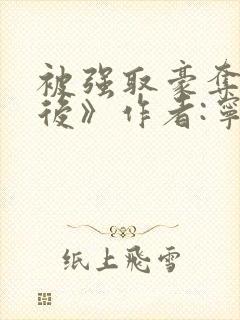 被强取豪夺
後》作者:寧
纸上飛雪